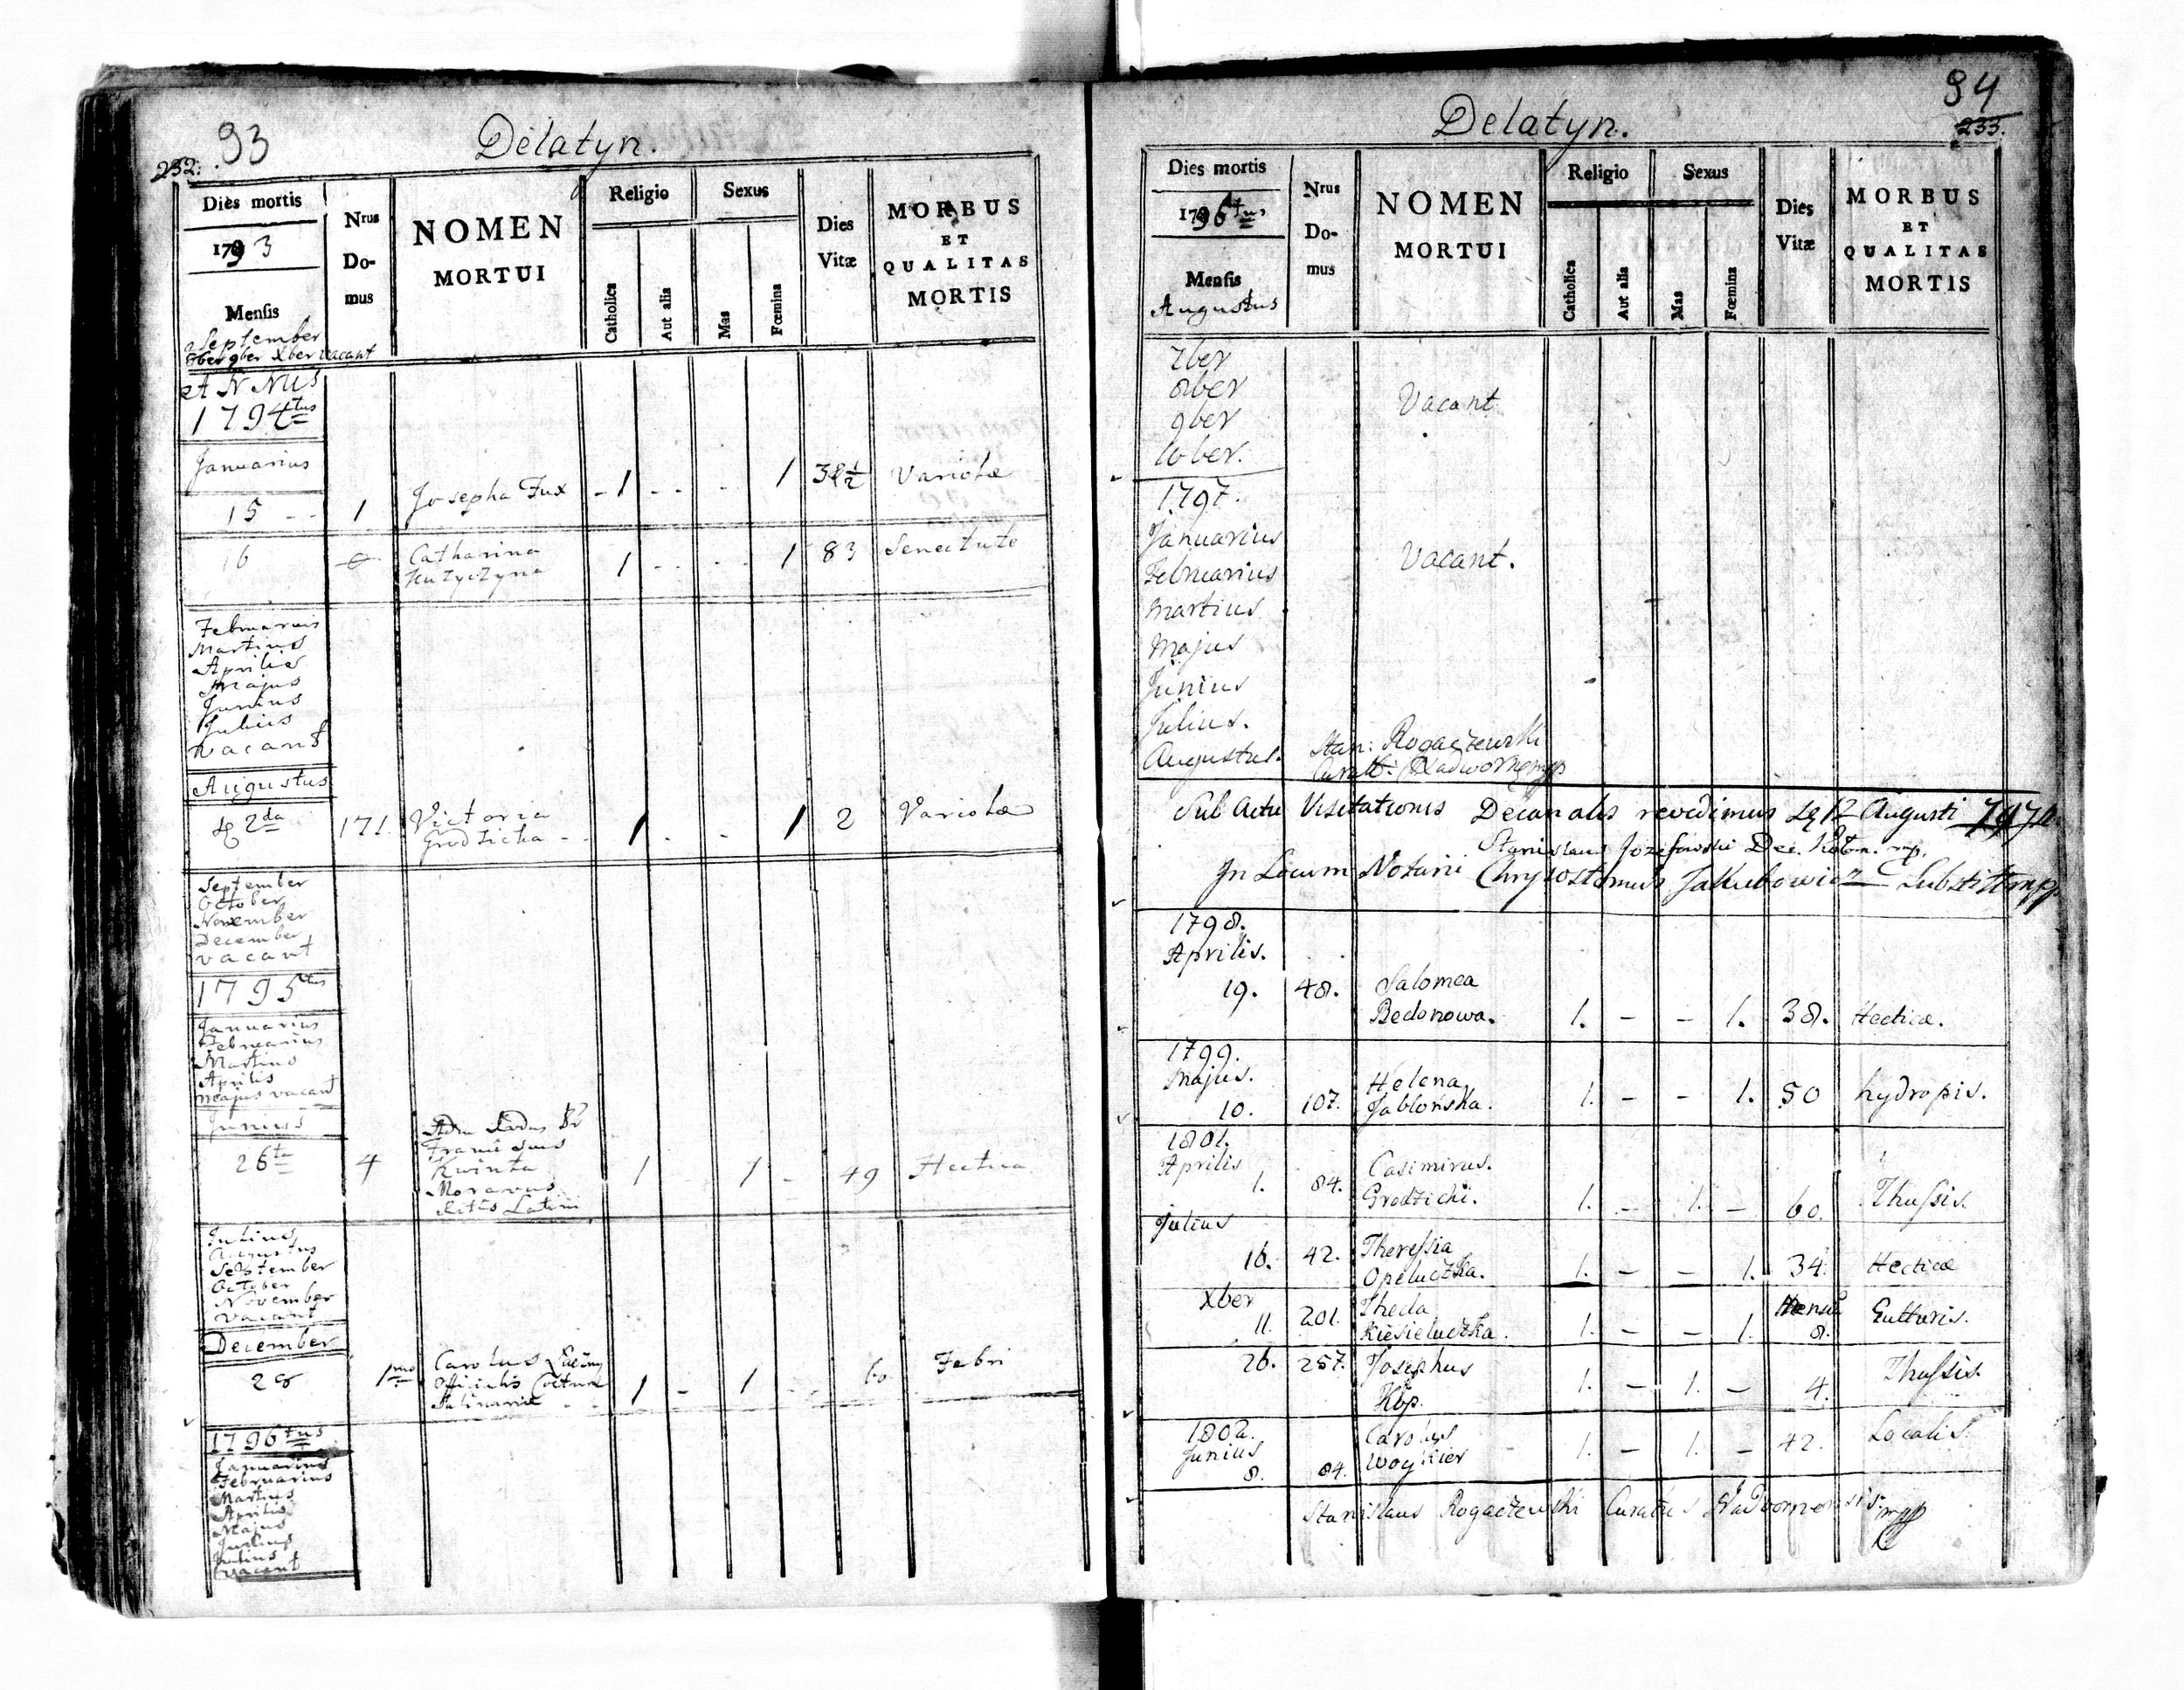 232. 93
Delatyn.
Dies mortis
1793
Mensis
September
8ber 9ber Xber vacant
Nrus
Do-
mus
NOMEN
MORTUI
Religio
Catholica
Aut alia
Sexus
Mas
Fœmina
Dies
Vitæ
MORBUS
ET
QUALITAS
MORTIS
ANNUS
1794tus
Januarius
15 - - 1 Josepha Fux - 1 - - - 1 Variolæ
16 Catharina
1 - - - - 1 83 Senectute
Februarius
Martius
Aprilis
Majus
Junius
Julius
vacant
Augustus
2da 171 Victoria
Grodzicka - 1 - - 1 2 Variolæ
September
October
November
December
vacant
1795tus
Januarius
Februarius
Martius
Aprilis
Majus vacant
Junius
26ta 4
Kwinta
Moravus
Ritus Latini
1 1 - 49 Hectica
Julius
Augustus
September
October
November
vacant
December
28 1mo Carolus
Officialis
1 - 1 - - 60 Febri
1796tus
Januarius
Februarius
Martius
Aprilis
Majus
Junius
Julius
vacant
94
233.
Delatyn.
Dies mortis
1796tus
Mensis
Augustus
Nrus
Do-
mus
NOMEN
MORTUI
Religio
Catholica
Aut alia
Sexus
Mas
Fœmina
Dies
Vitæ
MORBUS
ET
QUALITAS
MORTIS
7ber
8ber
9ber
10ber.
Vacant
1797.
Januarius
Februarius
Martius
Majus
Junius
Julius.
Augustus.
Vacant.
Stan: Rogaczewski
Sub Actu Visitationis Decanalis revidimus 12 Augusti
Stanislaus Jozefowski Dec.
In Locum Notarii Chrysostomus Jakubowicz
1798.
Aprilis.
19. 48. Salomea
Bedonowa. 1. - - 1. 38. Hecticæ.
1799.
Majus.
10. 107. Helena
Jablońska. 1. - - 1. 50 hydropis.
1801.
Aprilis
1. 84. Casimirus.
Grodzicki. 1. - 1. - 60. Thussis.
Julius
16. 42. Theressia
Opeluczka. 1. - - 1. 34. Hecticæ
Xber
11. 201. Thecla
Kiesieluczka. 1. - - 1. 8. Gutturis.
26. 257. Josephus
Kop. 1. - 1. - 4. Thussis.
1802.
Junius
8. 84. Carolus
Woykier 1. - 1. - 42. Localis.
Stanislaus Rogaczewski Curatus Nadvornensis mpp